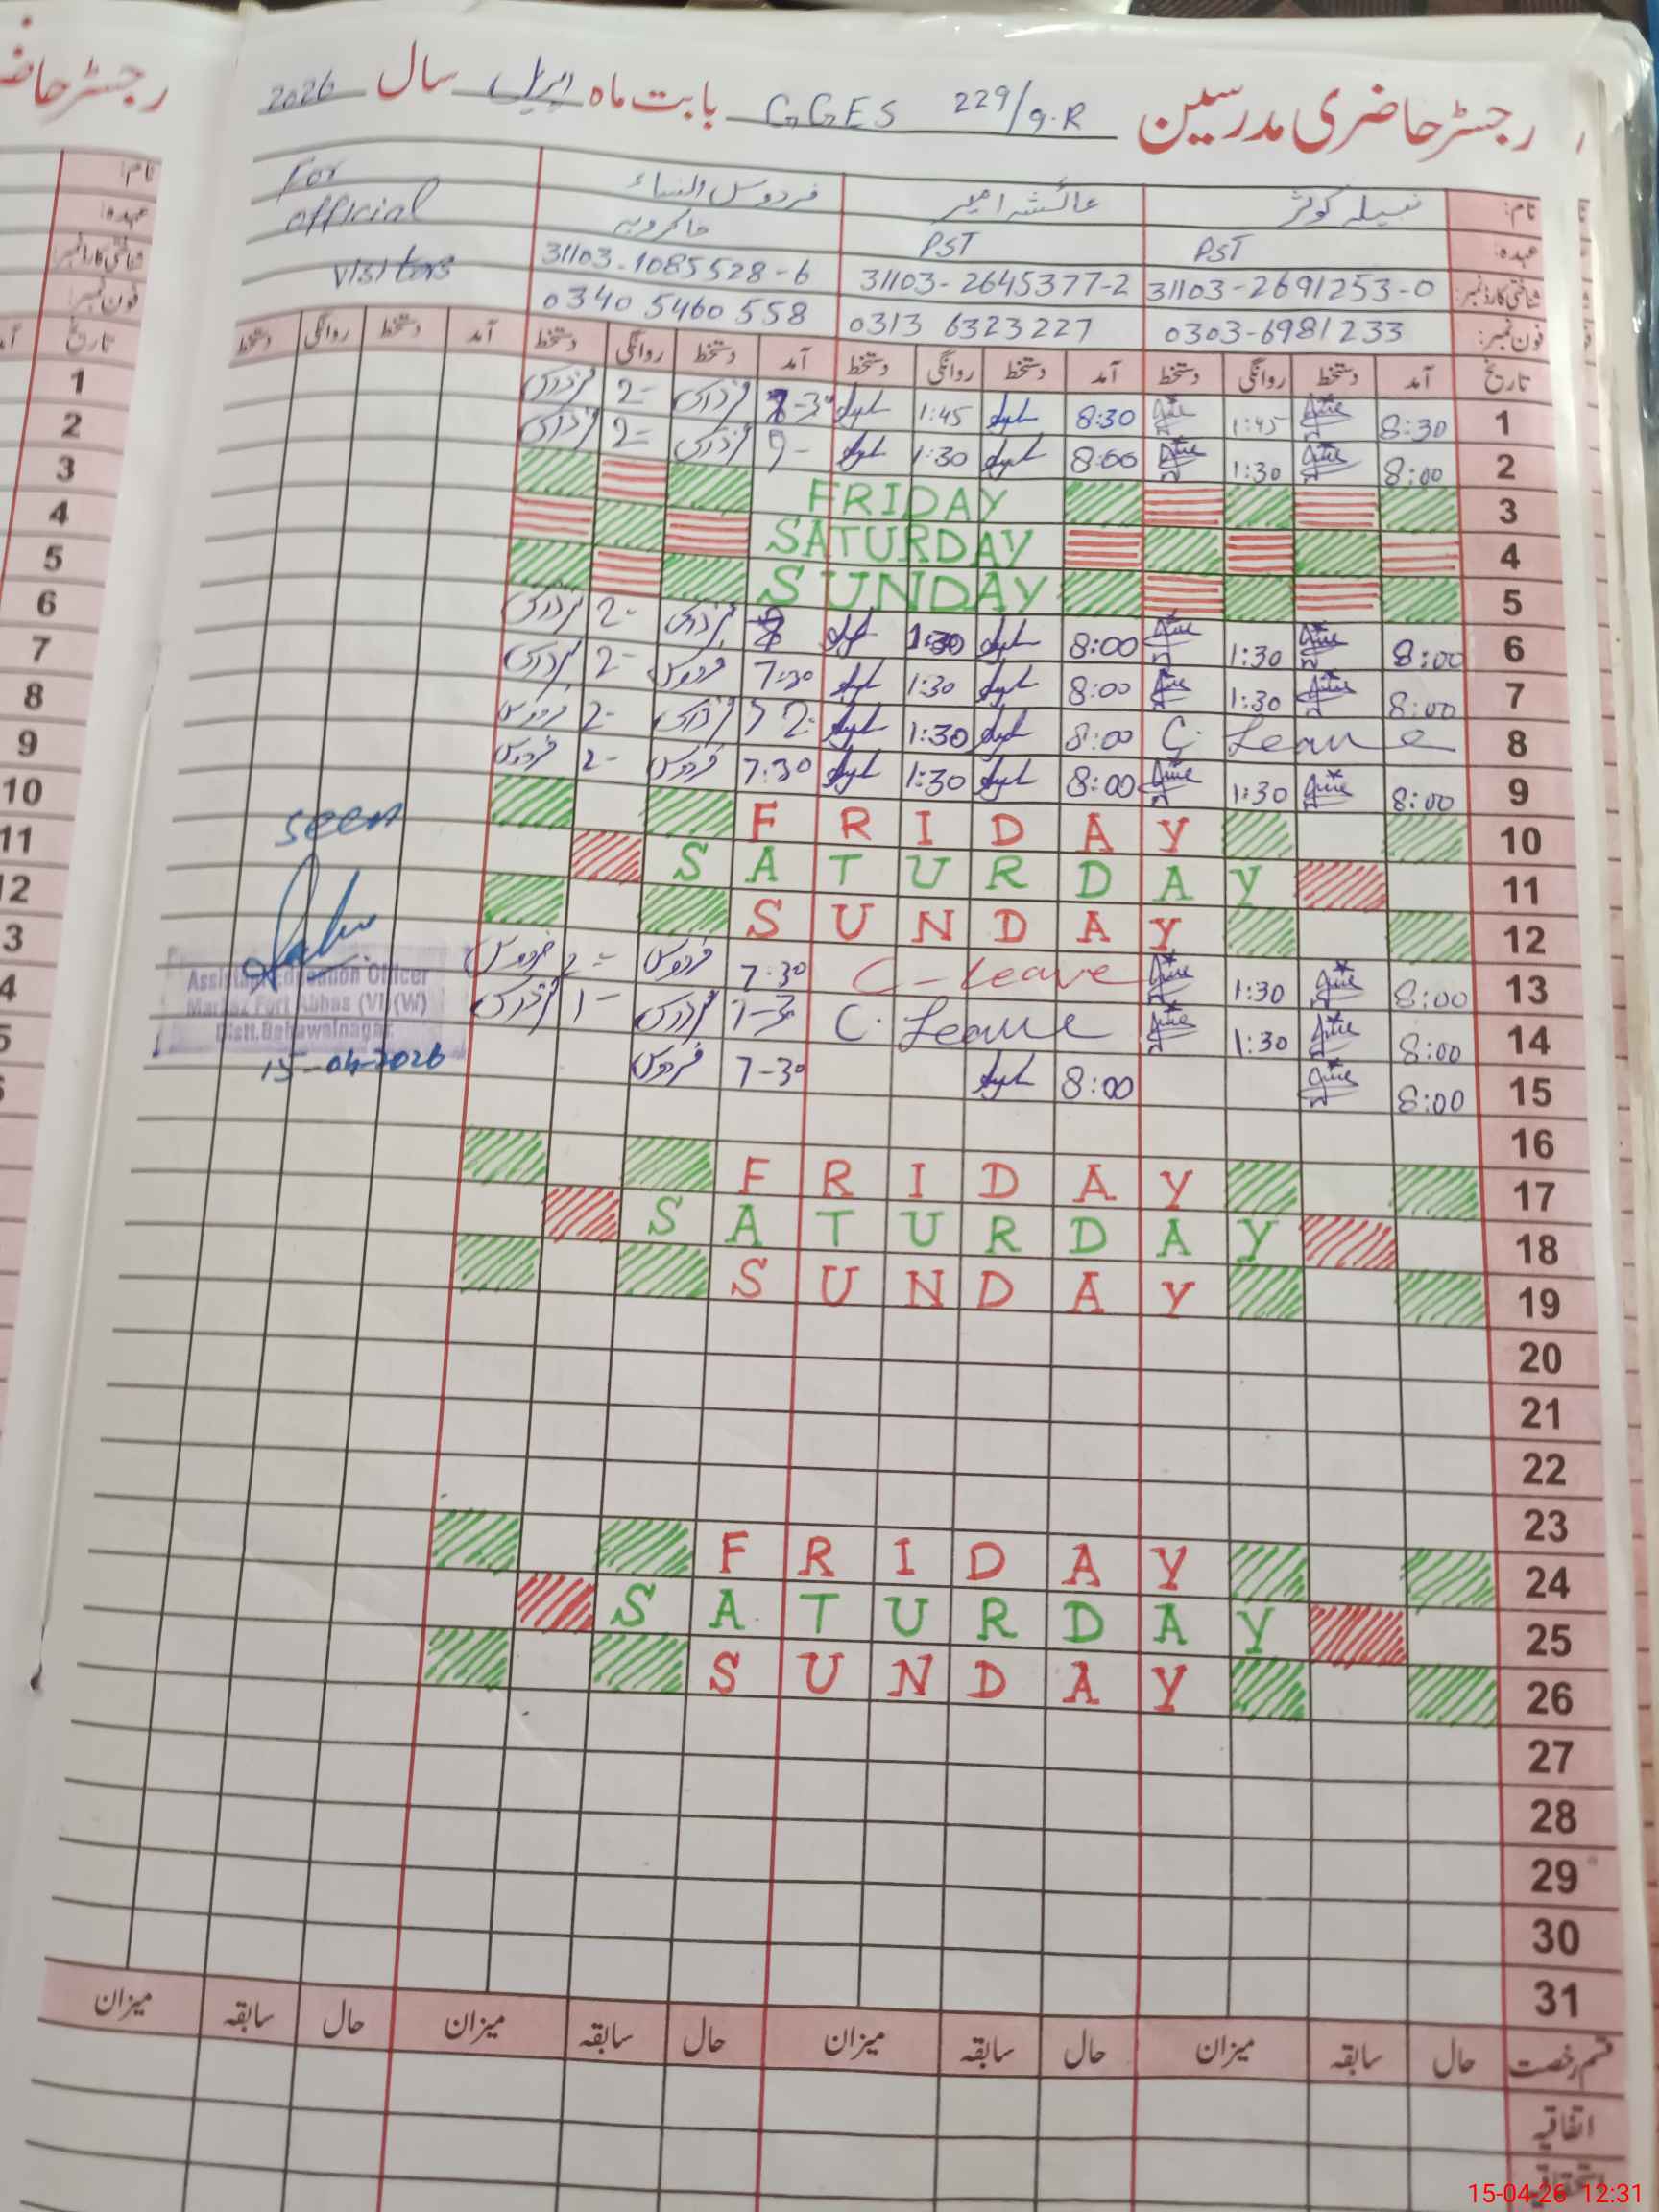 رجسٹر حاضری مدرسین GGES 229/9.R بابت ماہ اپریل سال 2026
نام: نبیلہ کوثر عائشہ امیر فردوس النساء For
عہدہ: PST PST خاکروبہ official
شناختی کارڈ نمبر: 31103-2691253-0 31103-2645377-2 31103-1085528-6 visitors
فون نمبر: 0303-6981233 0313 6323227 0340 5460 558
تاریخ آمد دستخط روانگی دستخط آمد دستخط روانگی دستخط آمد دستخط روانگی دستخط آمد دستخط روانگی دستخط
1 8:30 1:45 8:30 1:45 2-
2 8:00 1:30 8:00 1:30 2-
3 FRIDAY
4 SATURDAY
5 SUNDAY
6 8:00 1:30 8:00 1:30 2-
7 8:00 1:30 8:00 1:30 7:30 فردوس 2-
8 C. Leave 8:00 1:30 2- فردوس
9 8:00 1:30 8:00 1:30 7:30 فردوس 2- فردوس
10 FRIDAY
11 SATURDAY
12 SUNDAY
13 8:00 1:30 C-Leave 7-30 فردوس 2- فردوس
14 8:00 1:30 C. Leave 1-
15 8:00 8:00 7-30 فردوس
16
17 FRIDAY
18 SATURDAY
19 SUNDAY
20
21
22
23
24 FRIDAY
25 SATURDAY
26 SUNDAY
27
28
29
30
31
seen
Assistant Education Officer
Markaz Fort Abbas (VI)(W)
Distt.Bahawalnagar
15-04-2026
قسم رخصت حال سابقہ میزان حال سابقہ میزان حال سابقہ میزان حال سابقہ میزان
اتفاقیہ
رجسٹر حاضری
نام:
عہدہ:
شناختی کارڈ نمبر:
فون نمبر:
تاریخ
1
2
3
4
5
6
7
8
9
10
11
15-04-26 12:31